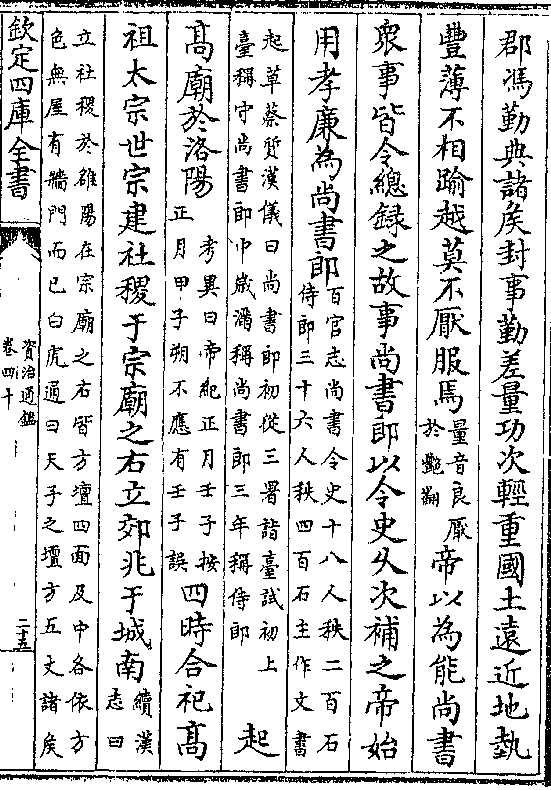 郡馮勤典諸矦封事勤差量功次輕重國土遠近地埶
豐薄不相踰越莫不厭服焉量音良厭於豔翻帝以為能尚書
衆事皆令總録之故事尚書郎以令史久次補之帝始
用孝廉為尚書郎百官志尚書令史十八人秩二百石侍郎三十六人秩四百石主作文書
起草蔡質漢儀曰尚書郎初從三署詣臺試初上臺稱守尚書郎中歲滿稱尚書郎三年稱侍郎起
高廟於洛陽考異曰帝紀正月壬子按正月甲子朔不應有壬子誤四時合祀高
祖太宗世宗建社稷于宗廟之右立郊兆于城南續漢志曰
立社稷於雒陽在宗廟之右皆方壇四面及中各依方
色無屋有牆門而已白虎通曰天子之壇方五丈諸矦
欽定四庫全書
資治通鑑
卷四十
二十五